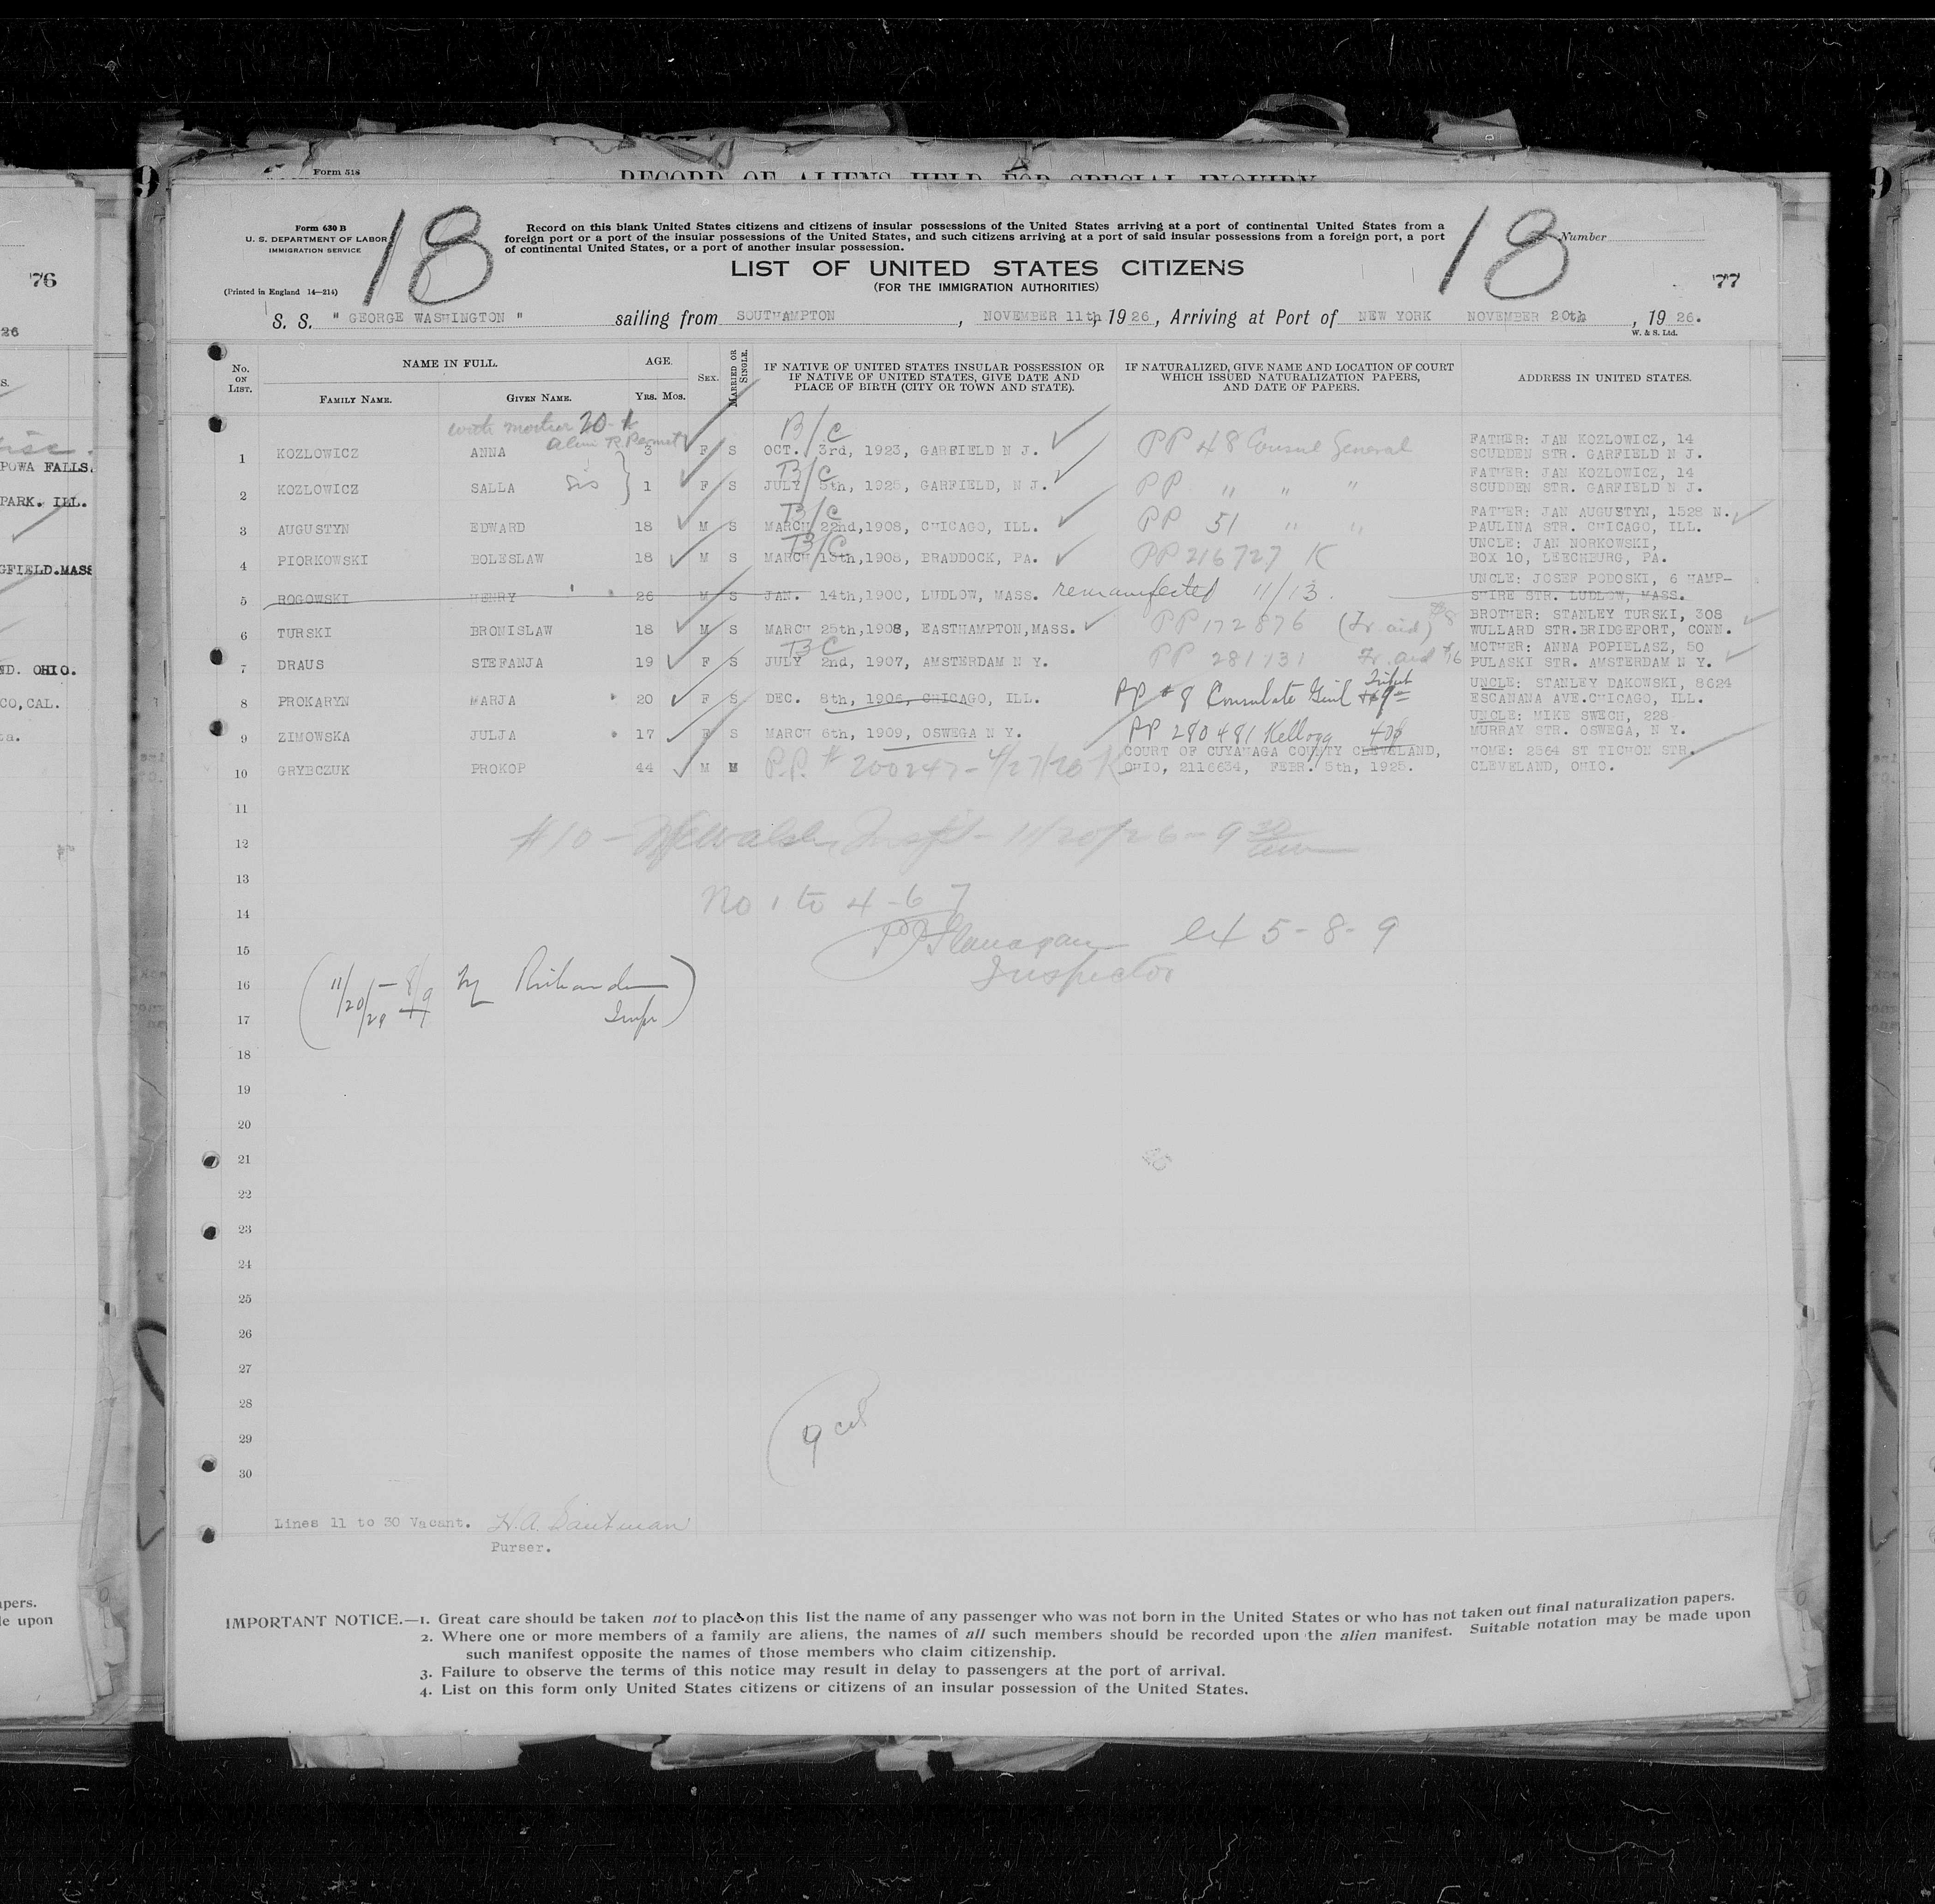 Form 518
RECORD OF ALIENS HELD FOR SPECIAL INQUIRY
9
9
76
26
S.
POWA FALLS.
PARK. ILL.
GFIELD.MASS
ND. OHIO.
CO,CAL.
apers.
le upon
Form 630 B
U. S. DEPARTMENT OF LABOR
IMMIGRATION SERVICE
(Printed in England 14—214)
18
Record on this blank United States citizens and citizens of insular possessions of the United States arriving at a port of continental United States from a
foreign port or a port of the insular possessions of the United States, and such citizens arriving at a port of said insular possessions from a foreign port, a port
of continental United States, or a port of another insular possession.
18
Number
77
LIST OF UNITED STATES CITIZENS
(FOR THE IMMIGRATION AUTHORITIES)
S. S. " GEORGE WASHINGTON " sailing from SOUTHAMPTON , NOVEMBER 11th, 1926, Arriving at Port of NEW YORK NOVEMBER 20th , 1926.
W. & S. Ltd.
No. ON LIST. NAME IN FULL. FAMILY NAME. GIVEN NAME. AGE. Yrs. Mos. SEX. MARRIED OR SINGLE. IF NATIVE OF UNITED STATES INSULAR POSSESSION OR IF NATIVE OF UNITED STATES, GIVE DATE AND PLACE OF BIRTH (CITY OR TOWN AND STATE). IF NATURALIZED, GIVE NAME AND LOCATION OF COURT WHICH ISSUED NATURALIZATION PAPERS, AND DATE OF PAPERS. ADDRESS IN UNITED STATES.
with mother 20-
alien R. Permit
B/C
1 KOZLOWICZ ANNA 3 F S OCT. 3rd, 1923, GARFIELD N J. PP 48 Consul General FATHER: JAN KOZLOWICZ, 14 SCUDDEN STR. GARFIELD N J.
B/C
2 KOZLOWICZ SALLA sis 1 F S JULY 5th, 1925, GARFIELD, N J. PP " " " FATHER: JAN KOZLOWICZ, 14 SCUDDEN STR. GARFIELD N J.
B/C
3 AUGUSTYN EDWARD 18 M S MARCH 22nd,1908, CHICAGO, ILL. PP 51 " " FATHER: JAN AUGUSTYN, 1528 N. PAULINA STR. CHICAGO, ILL.
B/C
4 PIORKOWSKI BOLESLAW 18 M S MARCH 15th,1908, BRADDOCK, PA. PP 216727 K UNCLE: JAN NORKOWSKI, BOX 10, LEECHBURG, PA.
5 ROGOWSKI HENRY 26 M S JAN. 14th,1900, LUDLOW, MASS. remanifested 11/13. UNCLE: JOSEF PODOSKI, 6 HAMP- SHIRE STR. LUDLOW, MASS.
6 TURSKI BRONISLAW 18 M S MARCH 25th,1908, EASTHAMPTON,MASS. PP 172876 (Tr aid) BROTHER: STANLEY TURSKI, 308 WULLARD STR.BRIDGEPORT, CONN.
BC
7 DRAUS STEFANJA 19 F S JULY 2nd, 1907, AMSTERDAM N Y. PP 281131 Tr. aid MOTHER: ANNA POPIELASZ, 50 PULASKI STR. AMSTERDAM N Y.
8 PROKARYN MARJA 20 F S DEC. 8th, 1906, CHICAGO, ILL. PP # 8 Consulate Genl UNCLE: STANLEY DAKOWSKI, 8624 ESCANANA AVE.CHICAGO, ILL.
9 ZIMOWSKA JULJA 17 F S MARCH 6th, 1909, OSWEGA N Y. PP 280481 Kellogg UNCLE: MIKE SWECH, 228 MURRAY STR. OSWEGA, N Y.
10 GRYBCZUK PROKOP 44 M M P.P. # 200247 - 4/27/26 K COURT OF CUYAHAGA COUNTY CLEVELAND, OHIO, 2116634, FEBR. 5th, 1925. HOME: 2564 ST TICHON STR. CLEVELAND, OHIO.
11
12 #10 - Walsh Inspt - 11/20/26 - 9 30
13
14 No 1 to 4 - 6 7
15 Flanagan ex 5-8-9
16 Inspector
17
18
19
20
21
22
23
24
25
26
27
28
29
30
9
Lines 11 to 30 Vacant.
Purser.
IMPORTANT NOTICE.—1. Great care should be taken not to place on this list the name of any passenger who was not born in the United States or who has not taken out final naturalization papers.
2. Where one or more members of a family are aliens, the names of all such members should be recorded upon the alien manifest. Suitable notation may be made upon
such manifest opposite the names of those members who claim citizenship.
3. Failure to observe the terms of this notice may result in delay to passengers at the port of arrival.
4. List on this form only United States citizens or citizens of an insular possession of the United States.